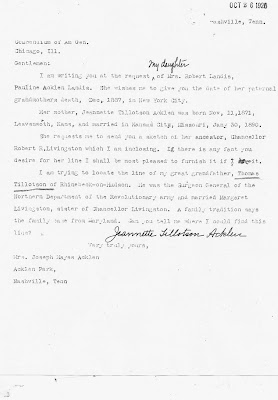 OCT 26 1926
Nashville, Tenn.
Compendium of Am Gen.
Chicago, Ill.
Gentlemen:
My daughter
I am writing you at the request, of Mrs. Robert Landis,
Pauline Acklen Landis. She wishes me to give you the date of her paternal
grandmothers death, Dec, 1887, in New York City.
Her mother, Jeannette Tillotson Acklen was born Nov, 11,1871,
Leavenworth, Kans, and married in Kansas City, Missouri, July 30, 1890.
She requests me to send you a sketch of her ancestor, Chancellor
Robert R.Livingston which I am inclosing. If there is any fact you
desire for her line I shall be most pleased to furnish it if I it.
I am trying to locate the line of my great grandfather, Thomas
Tillotson of Rhinebeck-on-Hudson. He was the Surgeon General of the
Northern Department of the Revolutionary army and married Margaret
Livingston, sister of Chancellor Livingston. A family tradition says
the family came from Maryland. Can you tell me where I could find this
line?
Jeannette Tillotson Acklen
Very truly yours,
Mrs. Joseph Hayes Acklen
Acklen Park,
Nashville, Tenn